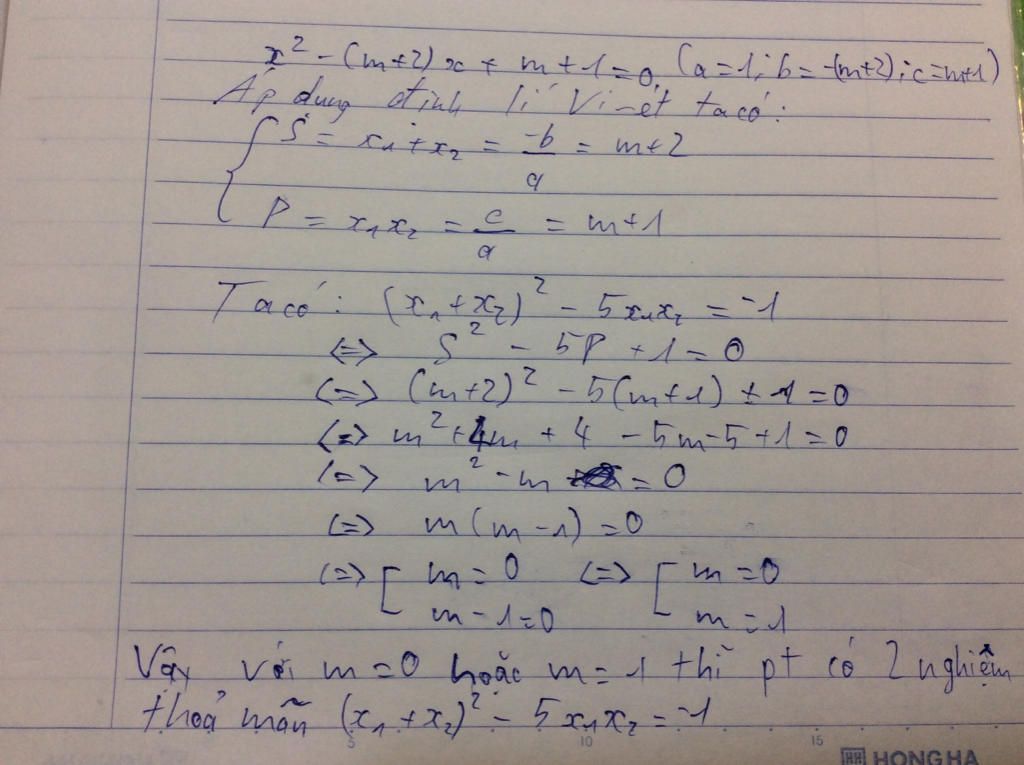 x² - (m+2)x + m+1=0. (a=1; b=-(m+2); c=m+1)
Áp dụng định lí Vi-ét ta có:
S = x₁+x₂ = -b/a = m+2
P = x₁x₂ = c/a = m+1
Ta có: (x₁+x₂)² - 5x₁x₂ = -1
<=> S² - 5P + 1 = 0
<=> (m+2)² - 5(m+1) + 1 = 0
<=> m² + 4m + 4 - 5m - 5 + 1 = 0
<=> m² - m = 0
<=> m(m-1) = 0
<=> [ m = 0 <=> [ m = 0
m - 1 = 0 m = 1
Vậy với m = 0 hoặc m = 1 thì pt có 2 nghiệm
thoả mãn (x₁+x₂)² - 5x₁x₂ = -1
5 10 15
HONG HA